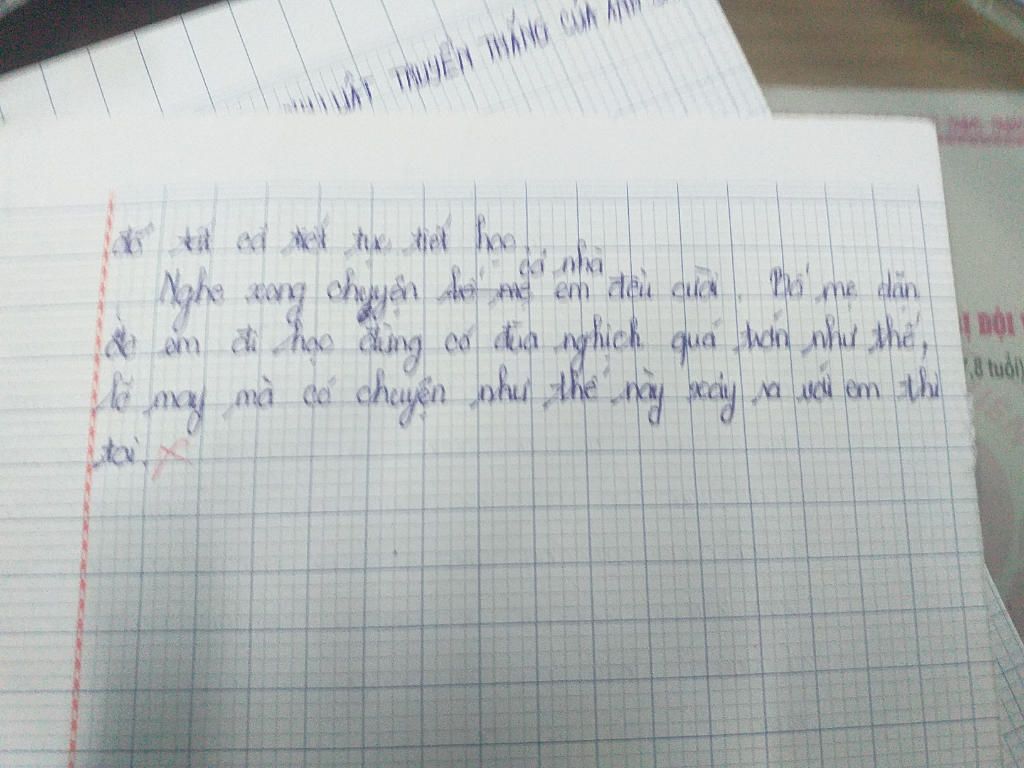 TRUYỀN THẮNG CỦA ANH
đó tất cả tiết tục tiết học
cả nhà
Nghe xong chuyện bố mẹ em đều cười. Bố mẹ dặn
dò em đi học đừng có đùa nghịch quá trớn như thế,
lỡ may mà có chuyện như thế này xảy ra với em thì
toi.
ĐỘI
8 tuổi)